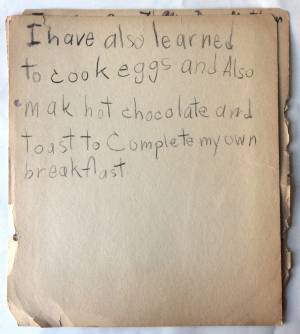 I have also learned
to cook eggs and Also
mak hot chocolate and
toast to Complete my own
breakfast